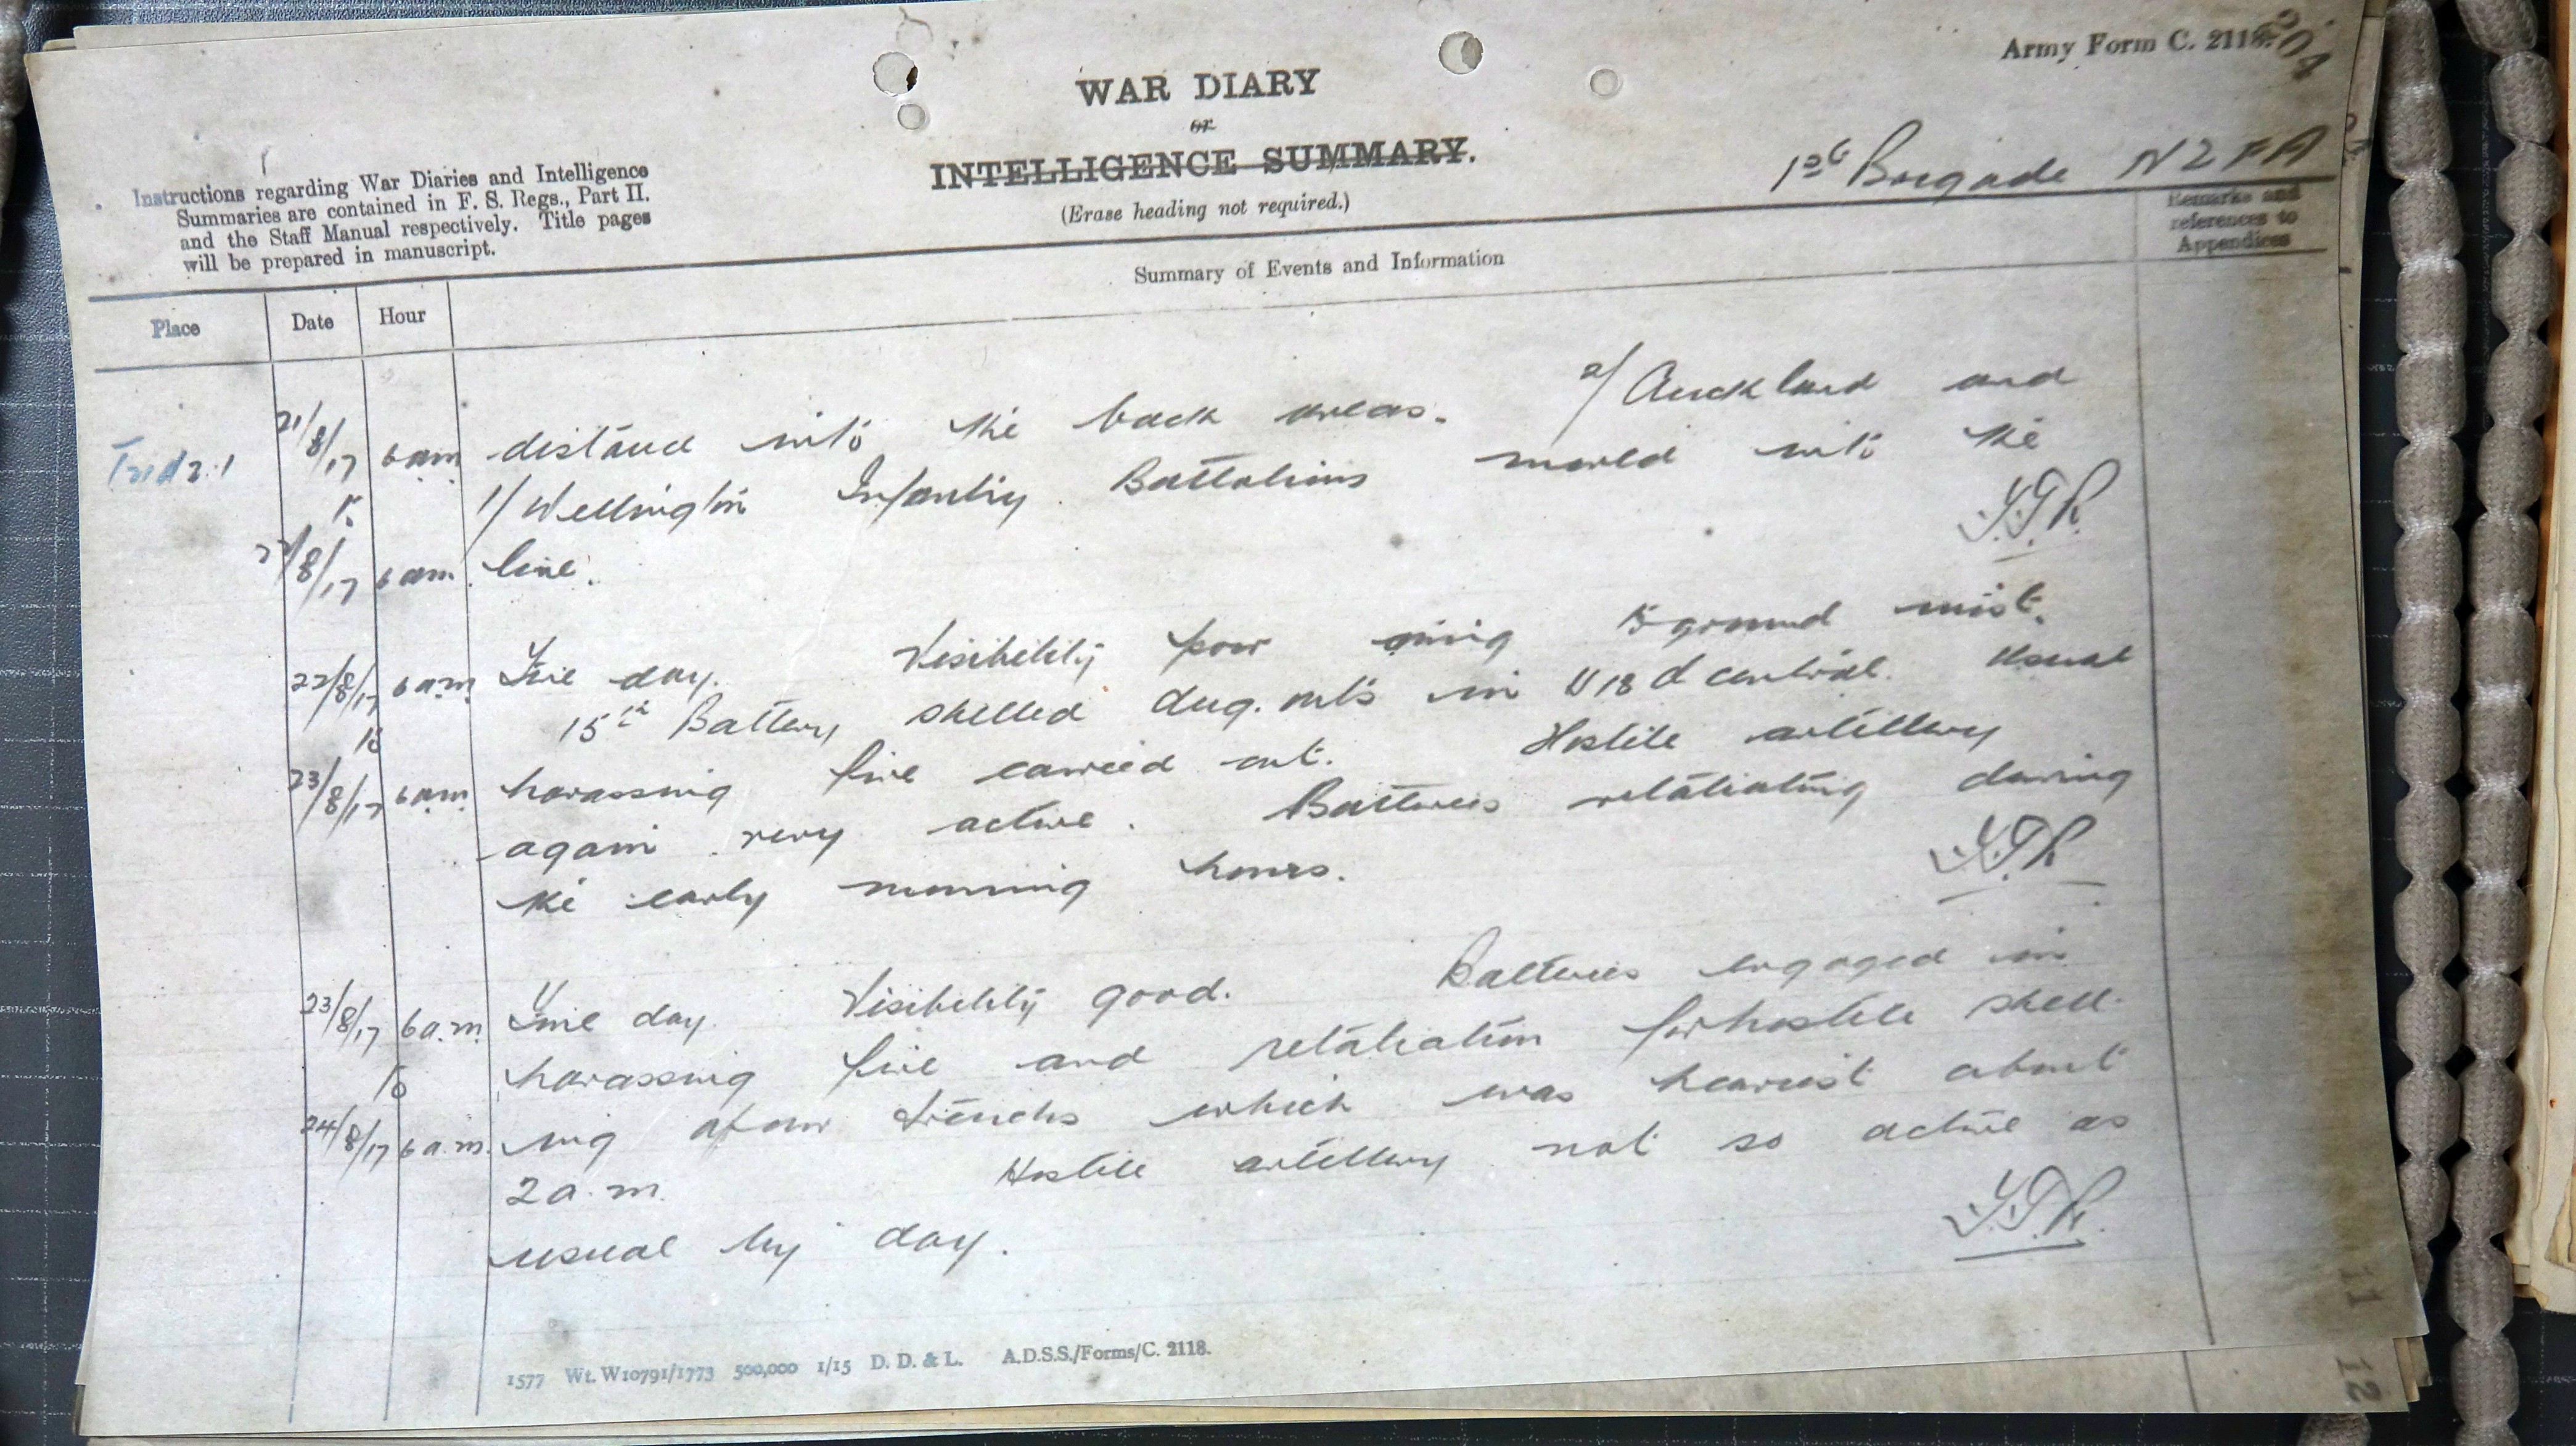 Army Form C. 2118.
204
WAR DIARY
or
INTELLIGENCE SUMMARY.
(Erase heading not required.)
1st Brigade NZFA
Instructions regarding War Diaries and Intelligence
Summaries are contained in F. S. Regs., Part II.
and the Staff Manual respectively. Title pages
will be prepared in manuscript.
Remarks and
references to
Appendices
Summary of Events and Information
Place
Date
Hour
21/8/17 6am distance into the back areas. 2/ Auckland and
to 1/ Wellington Infantry Battalions moved into the
22/8/17 6am line.
22/8/17 6am Fine day. Visibility poor owing to ground mist.
15th Battery shelled dug.outs in U18d central. Usual
to
23/8/17 6am harassing fire carried out. Hostile artillery
again very active. Batteries retaliating during
the early morning hours.
23/8/17 6a.m Fine day. Visibility good. Batteries engaged in
to harassing fire and retaliation for hostile shell-
24/8/17 6a.m. ing of our trenches which was heaviest about
2a.m. Hostile artillery not so active as
usual by day.
1577 Wt. W10791/1773 500,000 1/15 D. D. & L. A.D.S.S./Forms/C. 2118.
11
12